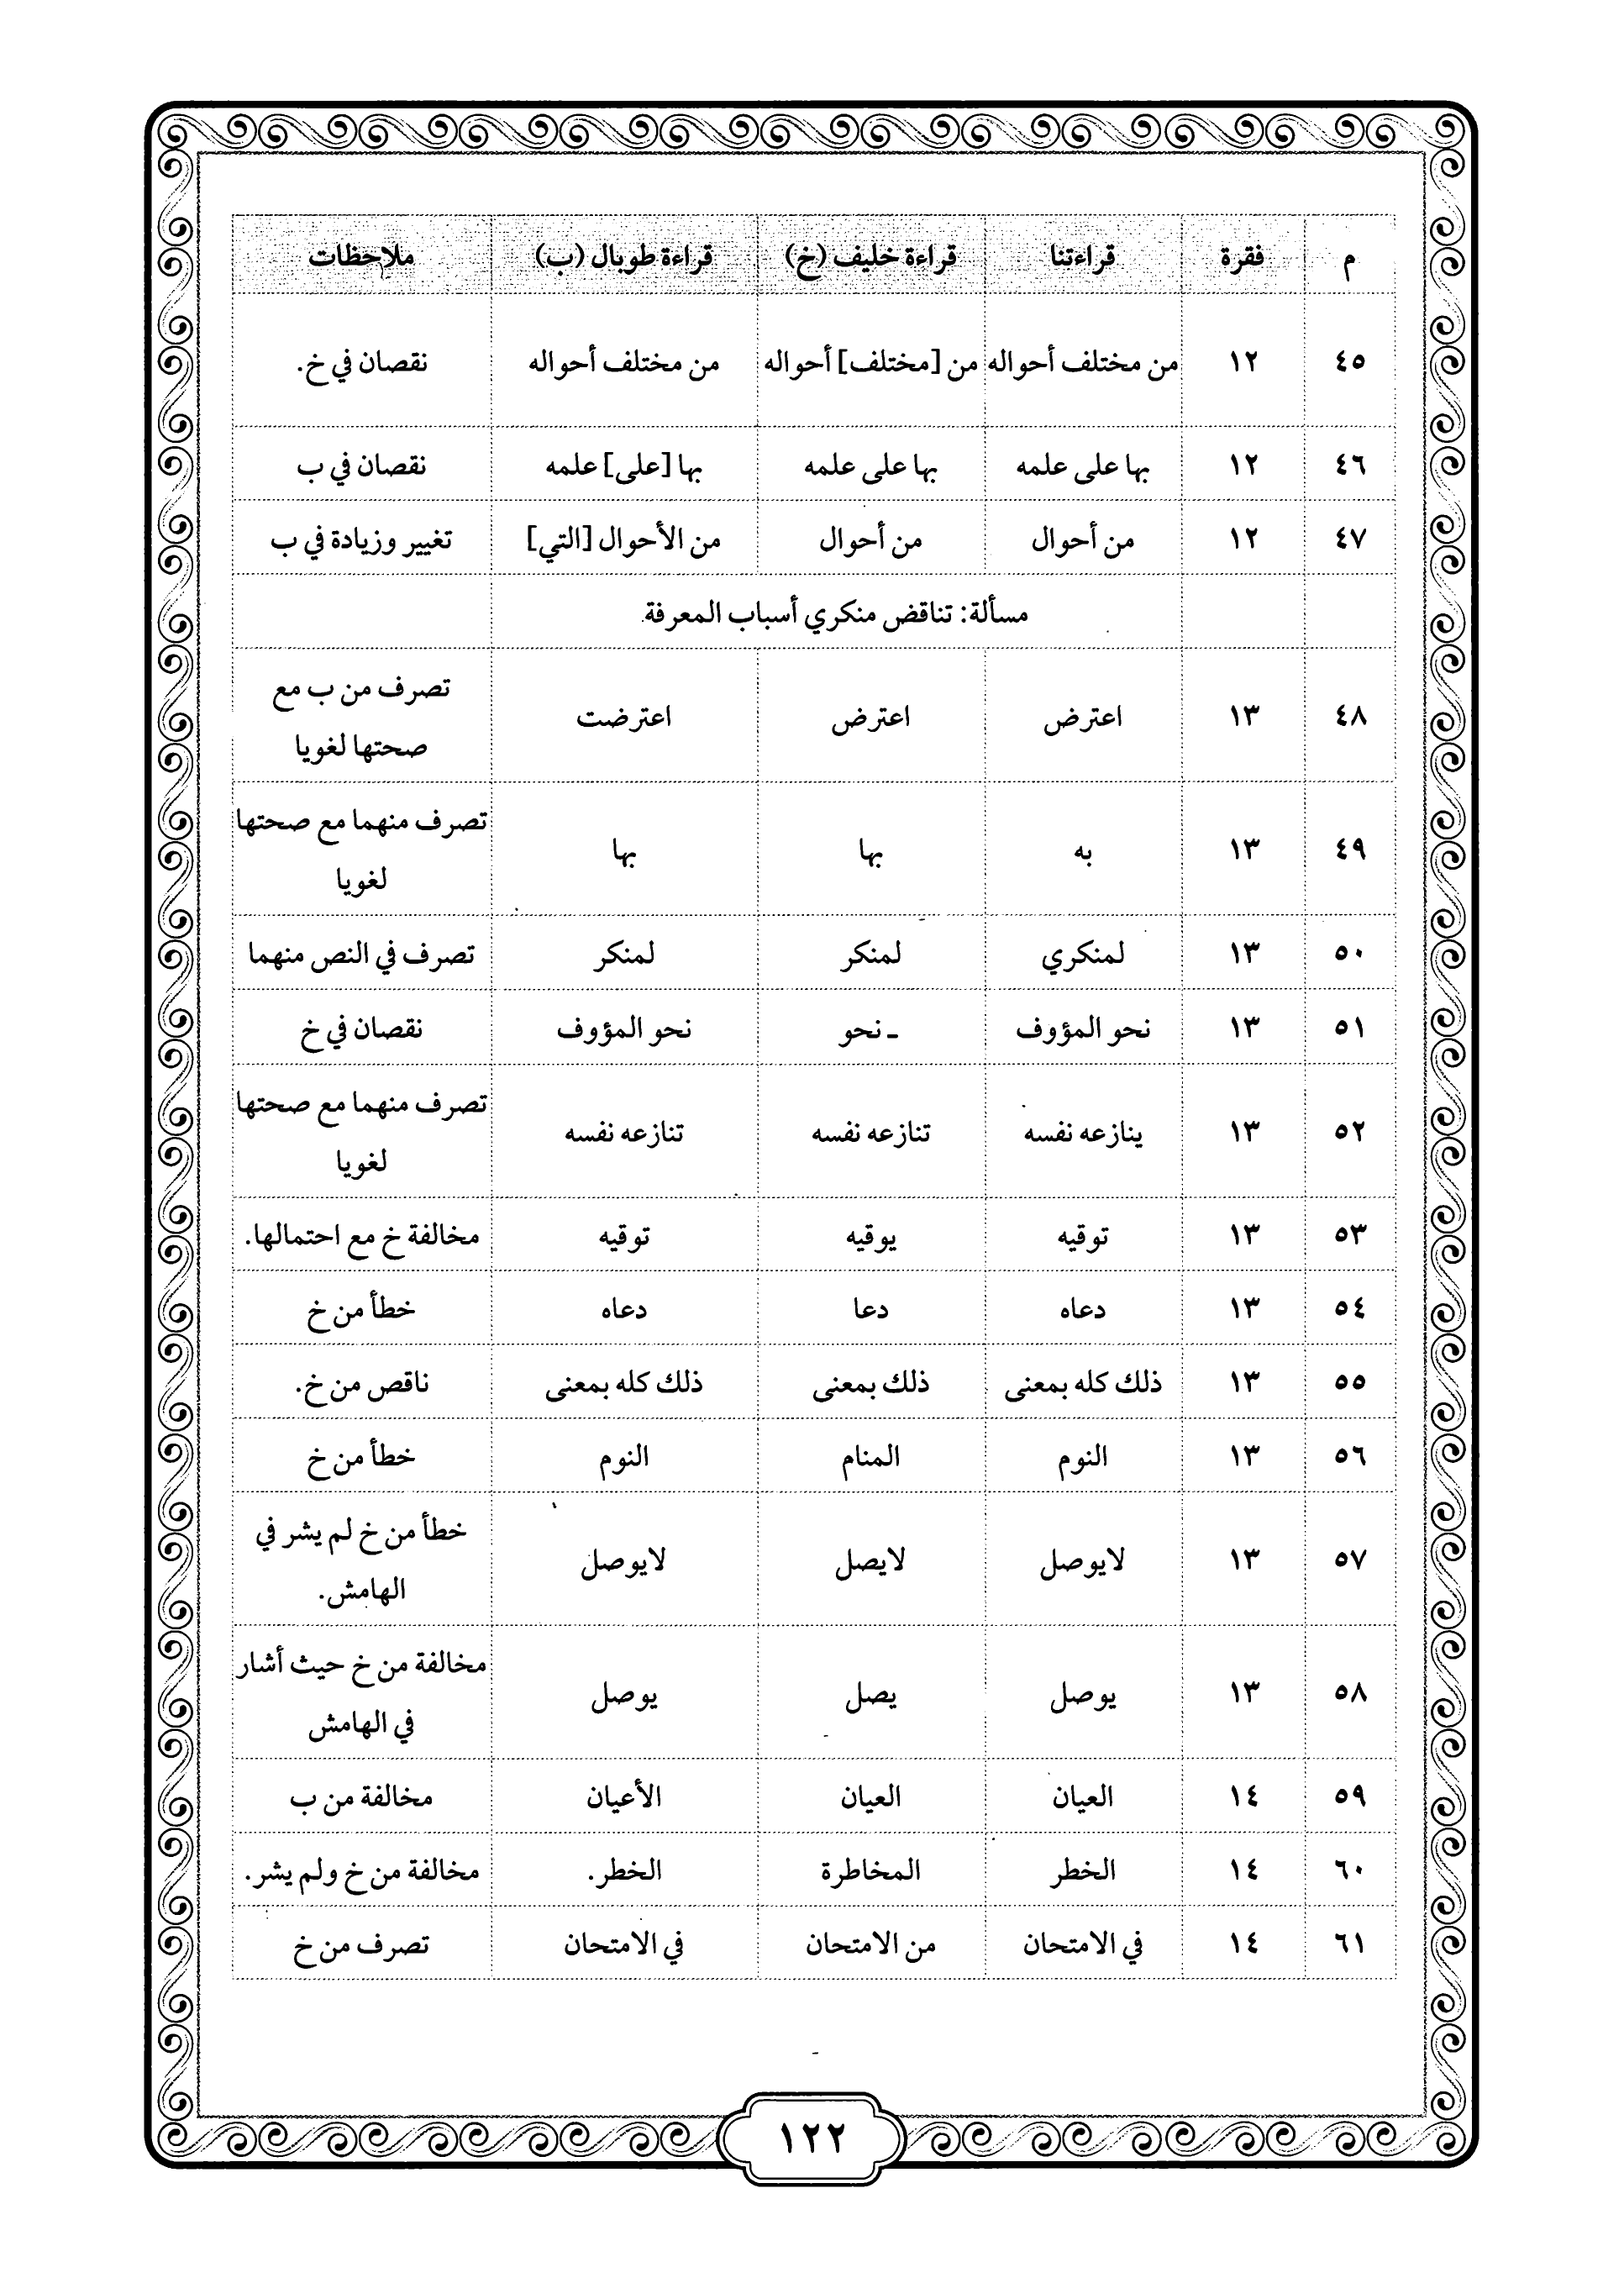 م فقرة قراءتنا قراءة خليف (خ) قراءة طوبال (ب) ملاحظات
٤٥ ١٢ من مختلف أحواله من [مختلف] أحواله من مختلف أحواله نقصان في خ.
٤٦ ١٢ بها على علمه بها على علمه بها [على] علمه نقصان في ب
٤٧ ١٢ من أحوال من أحوال من الأحوال [التي] تغيير وزيادة في ب
مسألة: تناقض منكري أسباب المعرفة
٤٨ ١٣ اعترض اعترض اعترضت تصرف من ب مع
صحتها لغويا
٤٩ ١٣ به بها بها تصرف منهما مع صحتها
لغويا
٥٠ ١٣ لمنكري لمنكر لمنكر تصرف في النص منهما
٥١ ١٣ نحو المؤوف ـ نحو نحو المؤوف نقصان في خ
٥٢ ١٣ ينازعه نفسه تنازعه نفسه تنازعه نفسه تصرف منهما مع صحتها
لغويا
٥٣ ١٣ توقيه يوقيه توقيه مخالفة خ مع احتمالها.
٥٤ ١٣ دعاه دعا دعاه خطأ من خ
٥٥ ١٣ ذلك كله بمعنى ذلك بمعنى ذلك كله بمعنى ناقص من خ.
٥٦ ١٣ النوم المنام النوم خطأ من خ
٥٧ ١٣ لايوصل لايصل لايوصل خطأ من خ لم يشر في
الهامش.
٥٨ ١٣ يوصل يصل يوصل مخالفة من خ حيث أشار
في الهامش
٥٩ ١٤ العيان العيان الأعيان مخالفة من ب
٦٠ ١٤ الخطر المخاطرة الخطر. مخالفة من خ ولم يشر.
٦١ ١٤ في الامتحان من الامتحان في الامتحان تصرف من خ
١٢٢